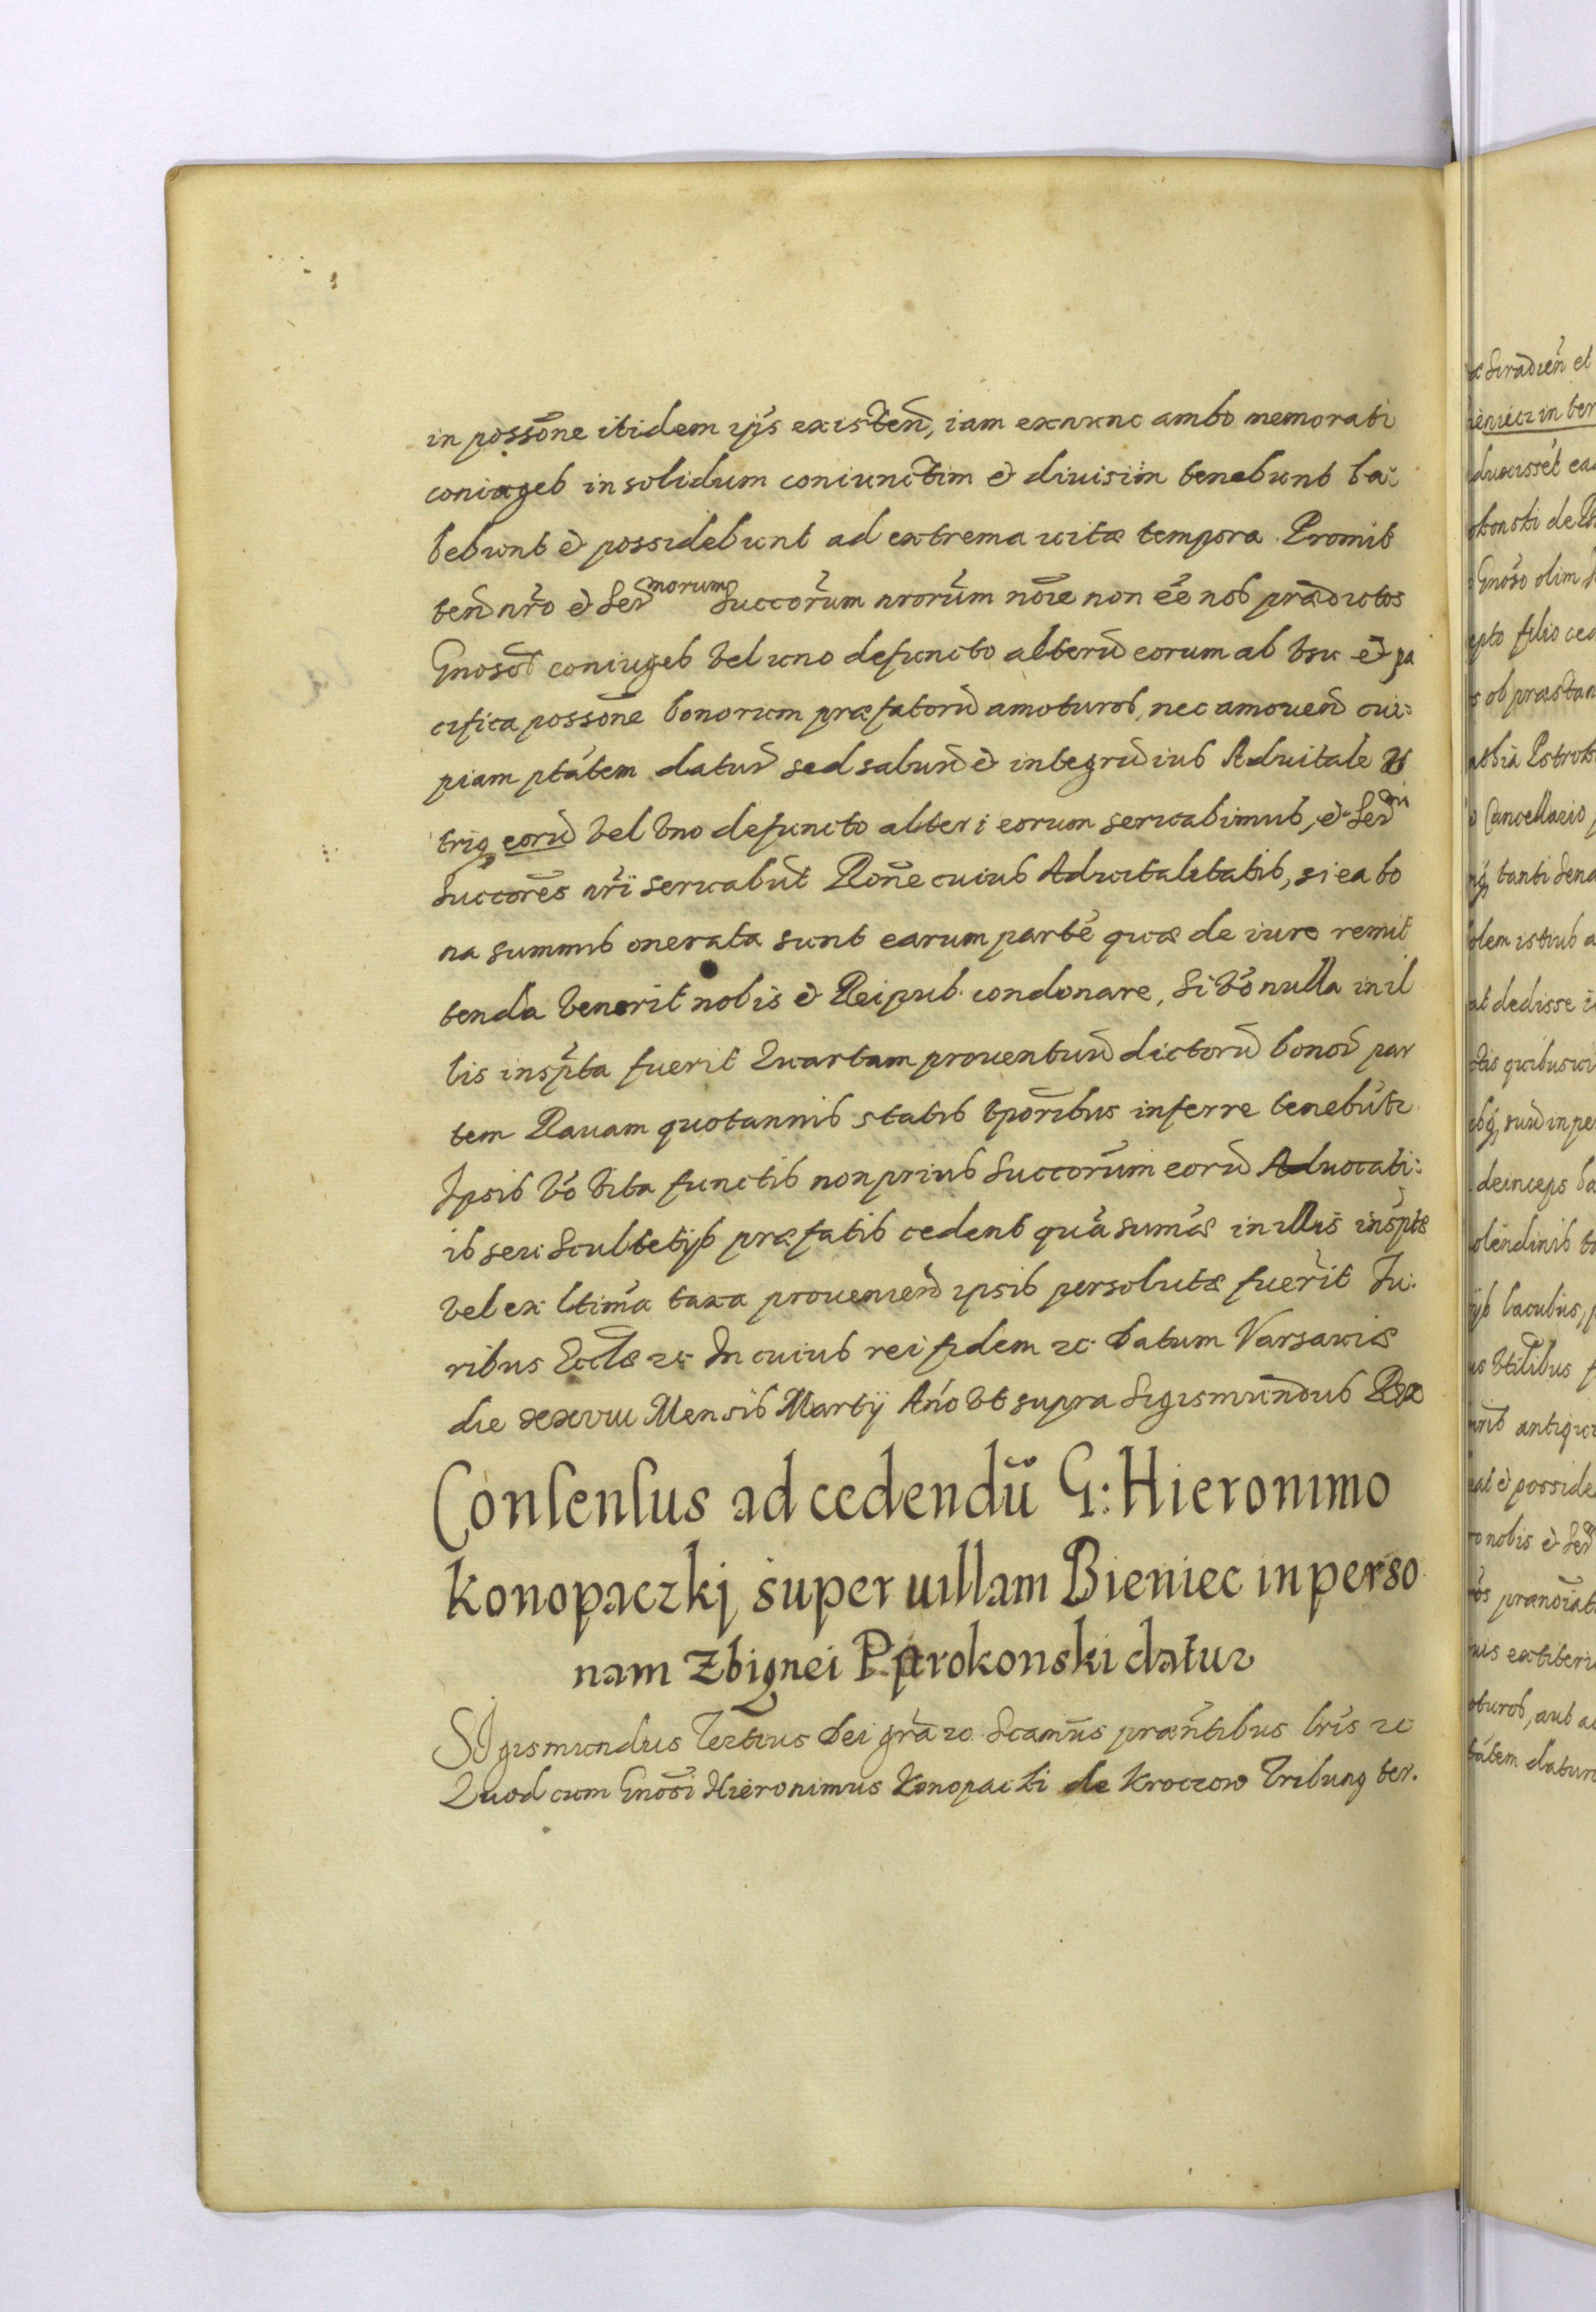 in possōne itidem ijs existen̄, iam exnunc ambo memorati
coniuges in solidum coniunctim et diuisim tenebunt ha:
bebunt et possidebunt ad extrema uitæ tempora. Promit
ten̄ nr̄o et Ser̄morum Succor̄um nror̄um nōīe non ēē nos prædictos
Gnosos coniuges vel uno defuncto alterū eorum ab vsu et pa
cifica possōne bonorum præfatorū amoturos, nec amouen̄ cui:
piam ptātem datur̄ sed saluū et integrū ius Aduitale v
triq3 eorū vel vno defuncto alteri eorum seruabimus, et Ser̄mi
Succor̄es nr̄i seruabūt Rōne cuius Aduitalitatis, si ea bo
na summis onerata sunt earum partē quæ de iure remit
tenda venerit nobis et Reipub. condonare, Si vō nulla in il
lis insp̄ta fuerit Quartam prouentuū dictorū bonor̄ par
tem Rauam quotannis statis tpōribus inferre tenebūtr
Ipsis vō vita functis non prius Succor̄um eorū Aduocati:
is seu Scultetijs præfatis cedent quā sumæ in illis insp̄tæ
vel ex ltima taxa prouenien̄ ipsis persolutæ fuerīt Iu:
ribus Eccl̄æ zc In cuius rei fidem zc Datum Varsauiæ
die xxviii Mensis Martij Ano vt supra Sigismundus Rex
Consensus ad cedendū G: Hieronimo
Konopaczkj super uillam Bieniec in perso
nam Zbignei Pprokonski datur
SIgismundus Tertius Dei grā zc Scamūs præntibus lrīs zc
Quod cum Gnosi Hieronimus Konopacki de Kroczow Tribung ter.
æ Siradien̄ et
bieniecz in ter
duxisset ea
okonski de
Gnoso olim
epto filio
s ob præstan
athiā Pstrok
o Cancellario
nq3 tanti Sena
olem istius a
at dedisse
ctis quibusui
bq3 suū in pe
deinceps
olendinis
lacubus,
us vtilibus
antiqui
eat et posside
ro nobis et Ser̄
os prænoiat
uis extiteri
oturos, aut a
ptātem datur